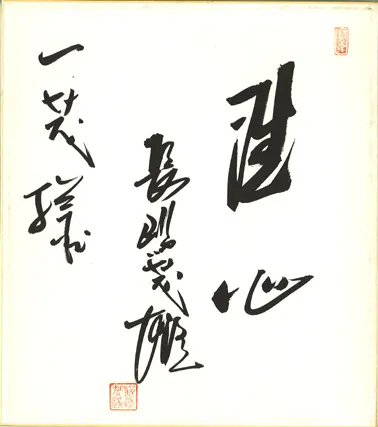 心
長嶋茂雄
一茂様